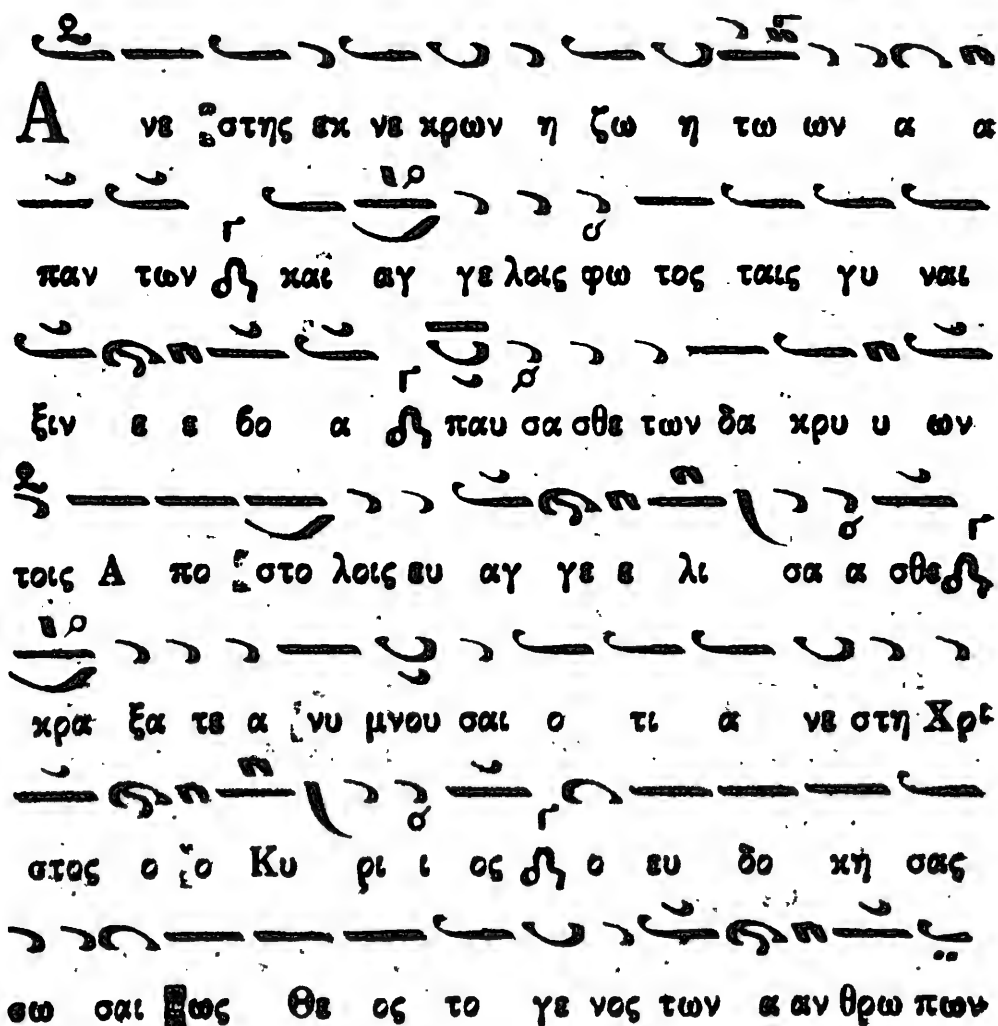 Α νε στης εκ νε κρων η ζω η τω ων α α
παν των και αγ γε λοις φω τος ταις γυ ναι
ξιν ε ε βο α παυ σα σθε των δα κρυ υ ων
τοις Α πο στο λοις ευ αγ γε ε λι σα α σθε
κρα ξα τε α νυ μνου σαι ο τι α νε στη Χρι
στος ο ο Κυ ρι ι ος ο ευ δο κη σας
σω σαι ως Θε ος το γε νος των α αν θρω πων